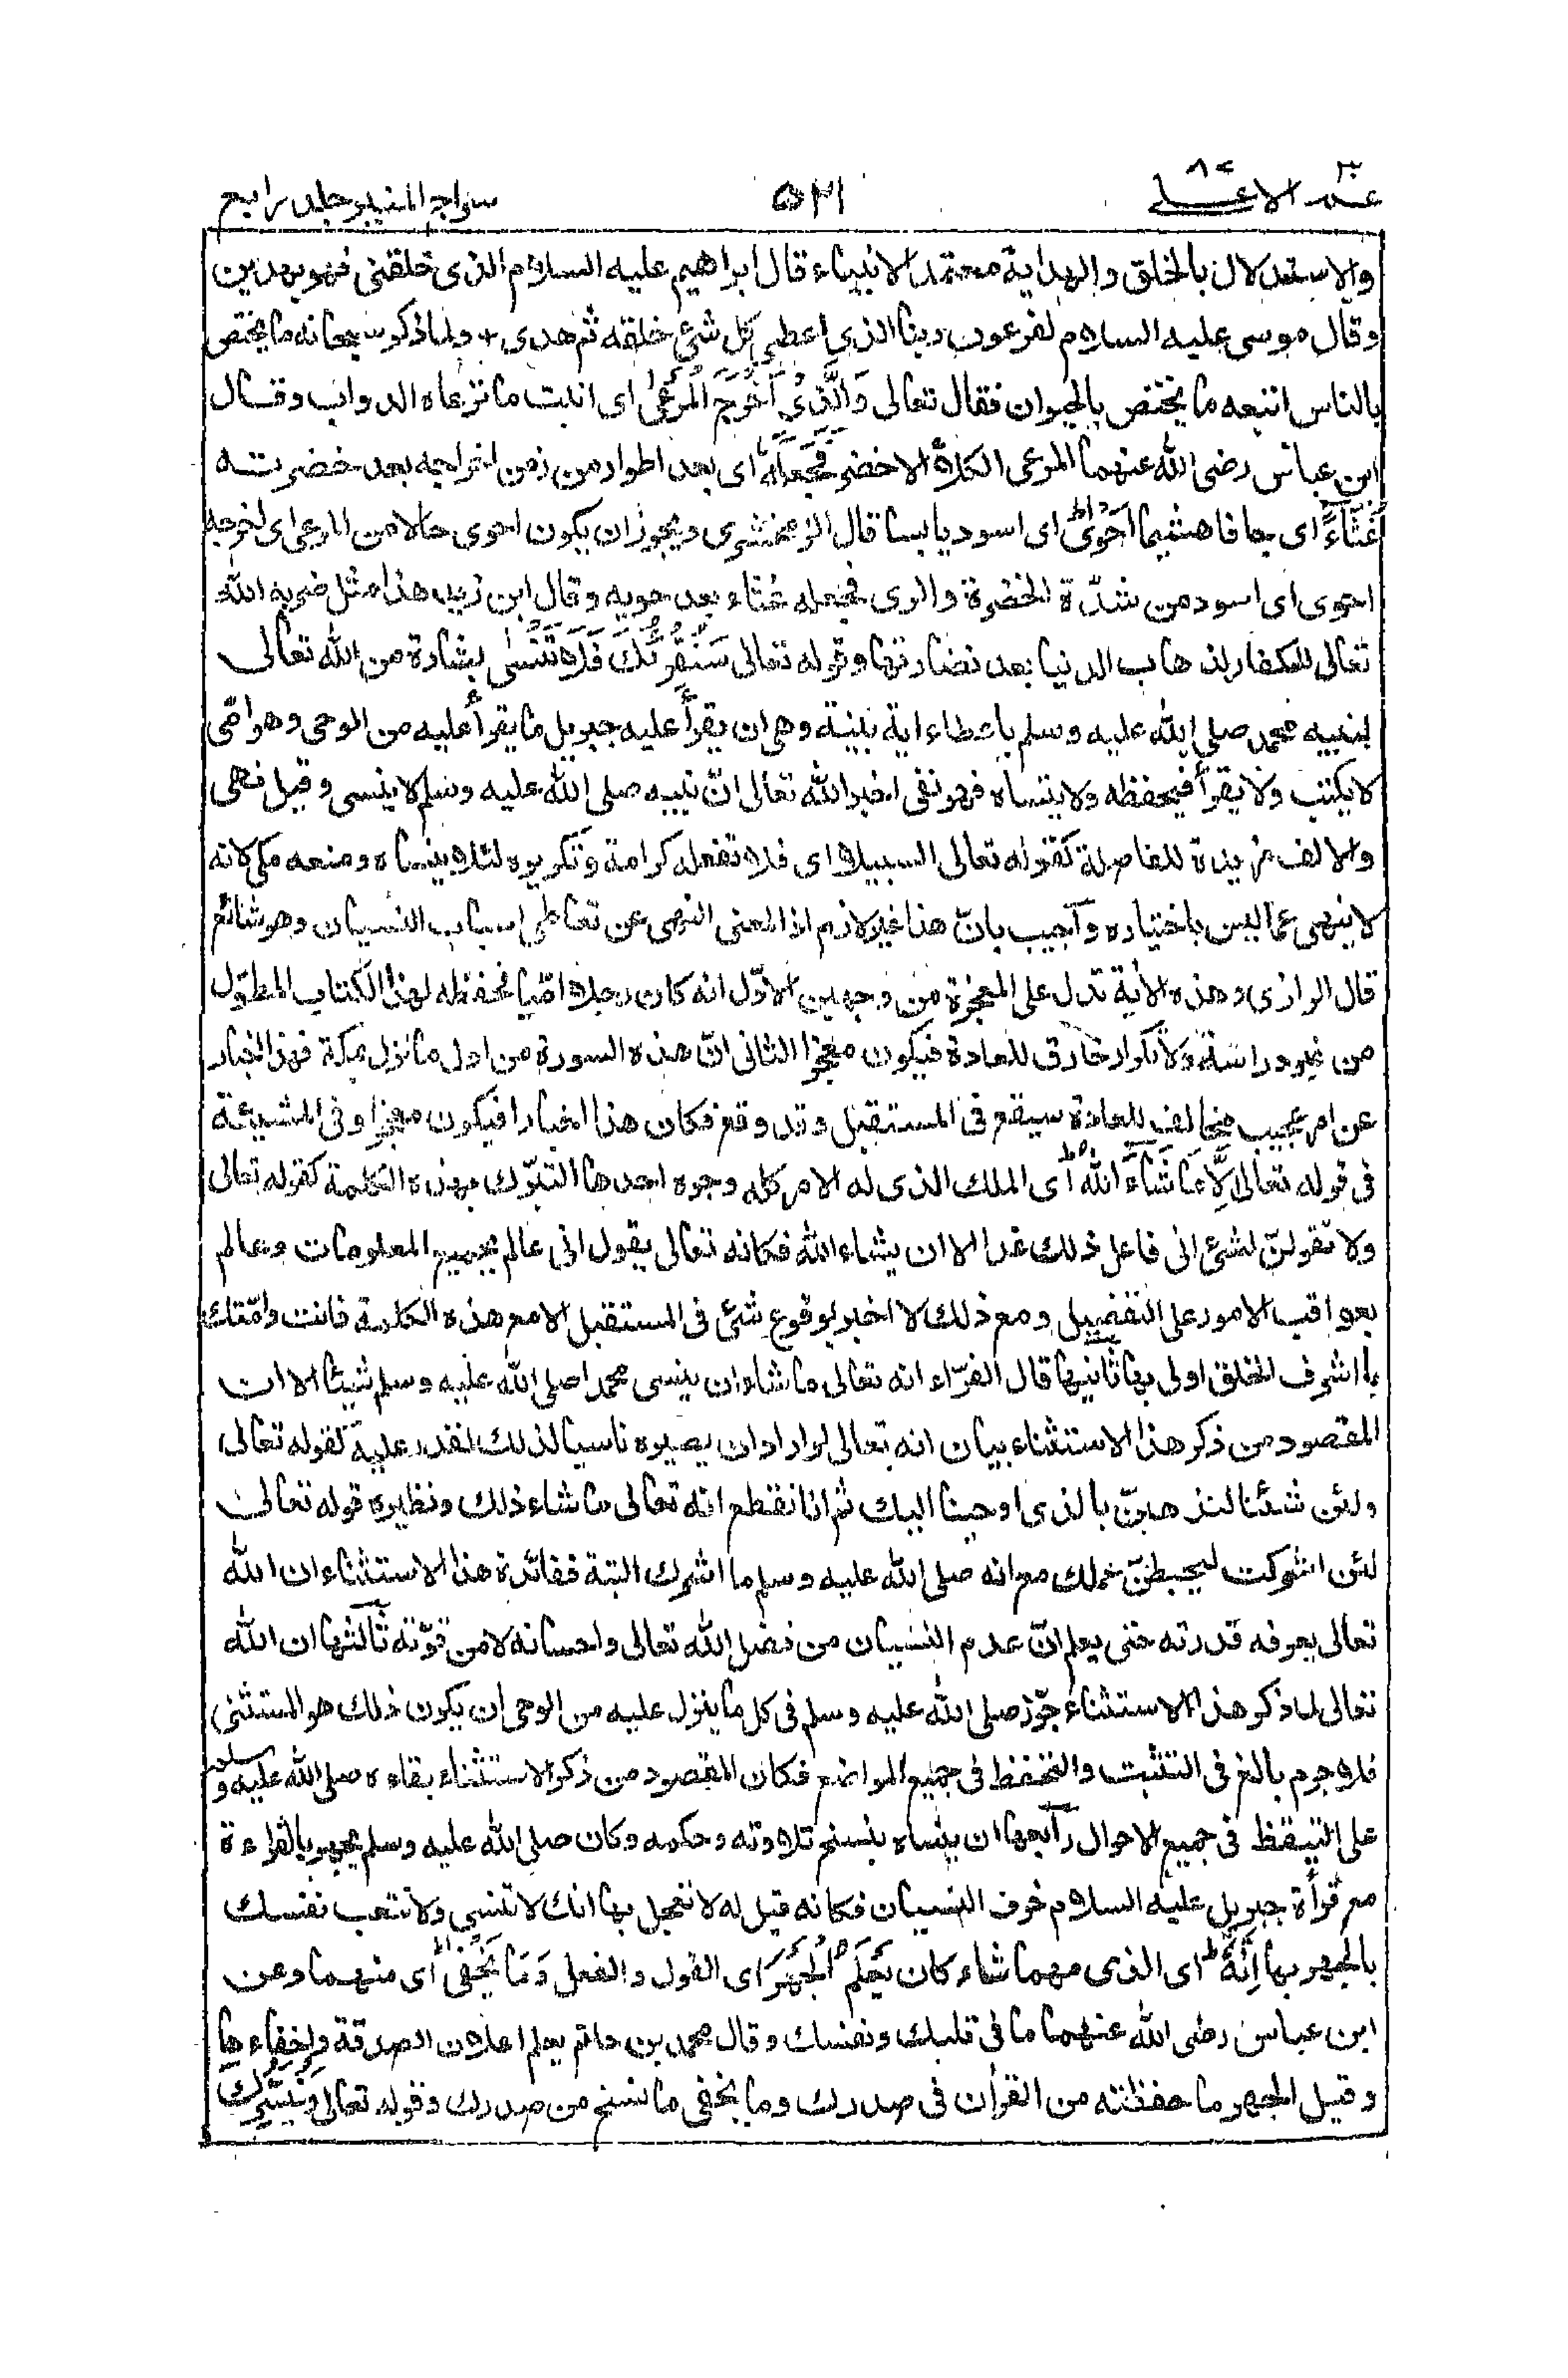 عم ٣٠ الاعلى ٨٧
٥٢١
سراج المنير جلد رابع
والاستدلال بالخلق والهداية معتمد الانبياء قال ابراهيم عليه السلام الذى خلقنى فهو يهدين
وقال موسى عليه السلام لفرعون ربنا الذى اعطى كل شئ خلقه ثم هدى + ولما ذكر سبحانه ما يختص
بالناس اتبعه ما يختص بالحيوان فقال تعالى وَالَّذِىْ اَخْرَجَ الْمَرْعٰى اى انبت ما ترعاه الدواب وقال
ابن عباس رضى الله عنهما المرعى الكلأ الاخضر فَجَعَلَهٗ اى بعد اطوار من زمن اخراجه بعد خضرته
غُثَآءً اى جافا هشيما اَحْوٰى ط اى اسود يابسا قال الزمخشرى ويجوز ان يكون احوى حالا من المرعى اى اخرجه
احوى اى اسود من شدّة الخضرة والرى فجعله غثاء بعد حويه وقال ابن زيد هذا مثل ضربه الله
تعالى للكفار لذهاب الدنيا بعد نضارتها وقوله تعالى سَنُقْرِئُكَ فَلَا تَنْسٰى بشارة من الله تعالى
لنبيه محمد صلى الله عليه وسلم باعطاء اية بينة وهى ان يقرأ عليه جبريل ما يقرأ عليه من الوحى وهو امّى
لا يكتب ولا يقرأ فيحفظه ولا ينساه فهو نفى اخبر الله تعالى انّ نبيه صلى الله عليه وسلم لا ينسى وقيل نهى
والالف مزيدة للفاصلة كقوله تعالى السبيلا اى فلا تفعل كرامة وتكريره لئلا ينساه ومنعه مكى لانه
لا ينهى عما ليس باختياره وأجيب بانّ هذا غير لازم اذ المعنى النهى عن تعاطى اسباب النسيان وهو شائع
قال الرازى وهذه الأية تدل على المعجزة من وجهين الاوّل انه كان رجلا امّيا فحفظه لهذا الكتاب المطوّل
من غير دراسة ولا تكرار خارق للعادة فيكون معجزا الثانى انّ هذه السورة من اول ما نزل بمكة فهذا اخبار
عن امر عجيب مخالف للعادة سيقع فى المستقبل وقد وقع فكان هذا اخبارا فيكون معجزا وفى المشيئة
فى قوله تعالى اِلَّا مَا شَآءَ اللّٰهُ ط اى الملك الذى له الامر كله وجوه احدها التبرّك بهذه الكلمة كقوله تعالى
ولا تقولنّ لشئ انى فاعل ذلك غدا الا ان يشاء الله فكانه تعالى يقول انى عالم بجميع المعلومات وعالم
بعواقب الامور على التفصيل ومع ذلك لا اخبر بوقوع شئ فى المستقبل الا مع هذه الكلمة فانت وامّتك
يا اشرف الخلق اولى بها ثانيها قال الفرّاء انه تعالى ما شاء ان ينسى محمدا صلى الله عليه وسلم شيئا الا ان
المقصود من ذكر هذا الاستثناء بيان انه تعالى لو اراد ان يصيره ناسيا لذلك لقدر عليه كقوله تعالى
ولئن شئنا لنذهبنّ بالذى اوحينا اليك ثم انا نقطع انه تعالى ما شاء ذلك ونظيره قوله تعالى
لئن اشركت ليحبطنّ عملك مع انه صلى الله عليه وسلم ما اشرك البتة ففائدة هذا الاستثناء ان الله
تعالى يعرفه قدرته حتى يعلم انّ عدم النسيان من فضل الله تعالى واحسانه لا من قوّته ثالثها ان الله
تعالى لما ذكر هذا الاستثناء جوّز صلى الله عليه وسلم فى كل ما ينزل عليه من الوحى ان يكون ذلك هو المستثنى
فلا جرم بالغ فى التثبت والتحفظ فى جميع المواضع فكان المقصود من ذكر الاستثناء بقاءه صلى الله عليه وسلم
على التيقظ فى جميع الاحوال رابعها ان ينساه بنسخ تلاوته وحكمه وكان صلى الله عليه وسلم يجهر بالقراءة
مع قرأة جبريل عليه السلام خوف النسيان فكانه قيل له لا تعجل بها انك لا تنسى ولا تتعب نفسك
بالجهر بها اِنَّهٗ اى الذى مهما شاء كان يَعْلَمُ الْجَهْرَ اى القول والفعل وَمَا يَخْفٰى ط اى منهما وعن
ابن عباس رضى الله عنهما ما فى قلبك ونفسك وقال محمد بن حاتم يعلم اعلان الصدقة واخفاءها
وقيل الجهر ما حفظته من القرأن فى صدرك وما يخفى ما نسخ من صدرك وقوله تعالى وَنُيَسِّرُكَ